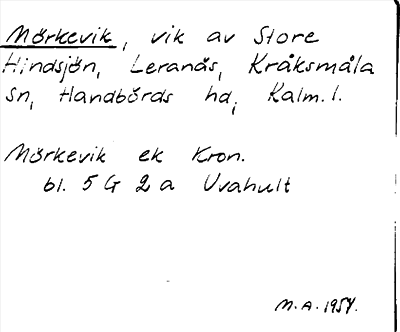 Mörkevik, vik av Store
Hindsjön, Leranäs, Kråksmåla
sn, Handbörds hd, Kalm. l.
Mörkevik ek Kron.
bl. 5 G 2 a Uvahult
M.A. 1954.